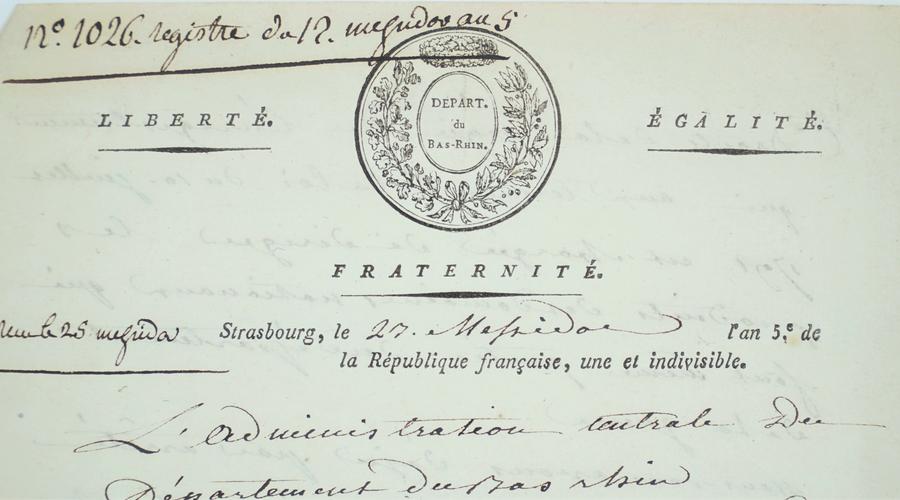 N.º 1026. registre du 12. messidor an 5
LIBERTÉ.
DÉPART.
du
BAS-RHIN.
ÉGALITÉ.
FRATERNITÉ.
le 25 messidor
Strasbourg, le 27. Messidor l'an 5.e de
la République française, une et indivisible.
L'administration centrale Du
Département du Bas rhin